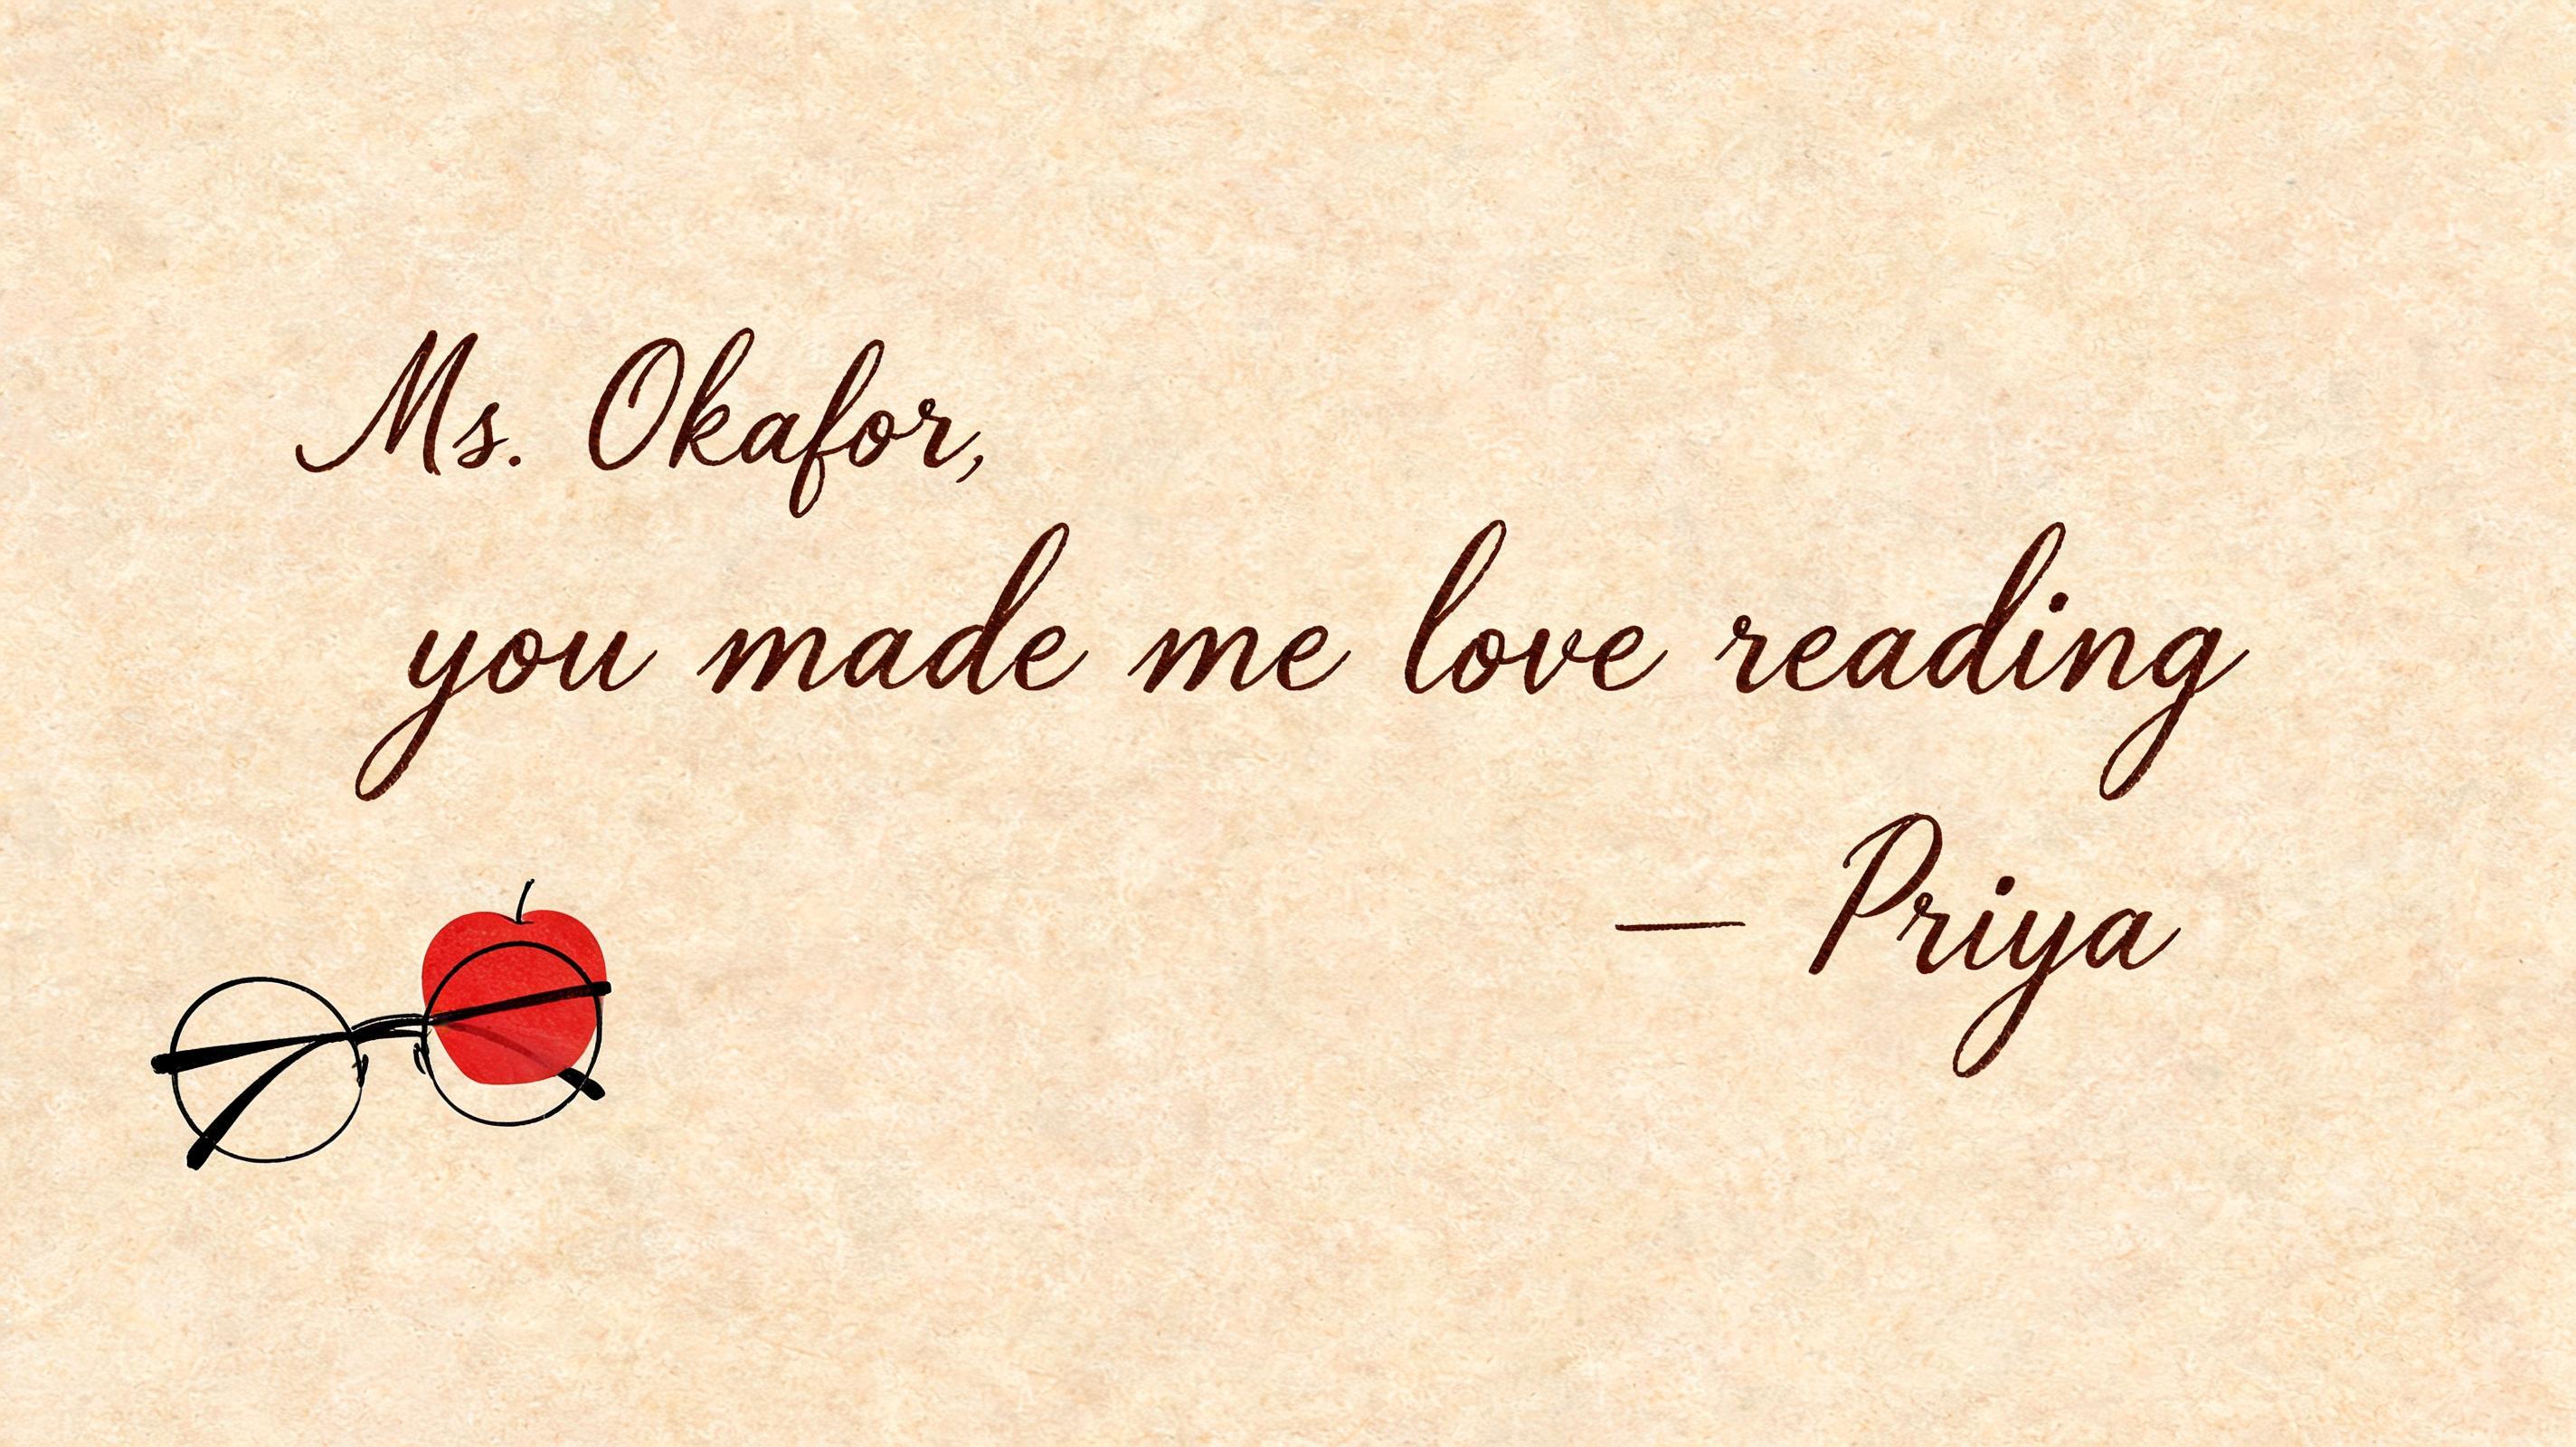 Ms. Okafor,
you made me love reading
— Priya